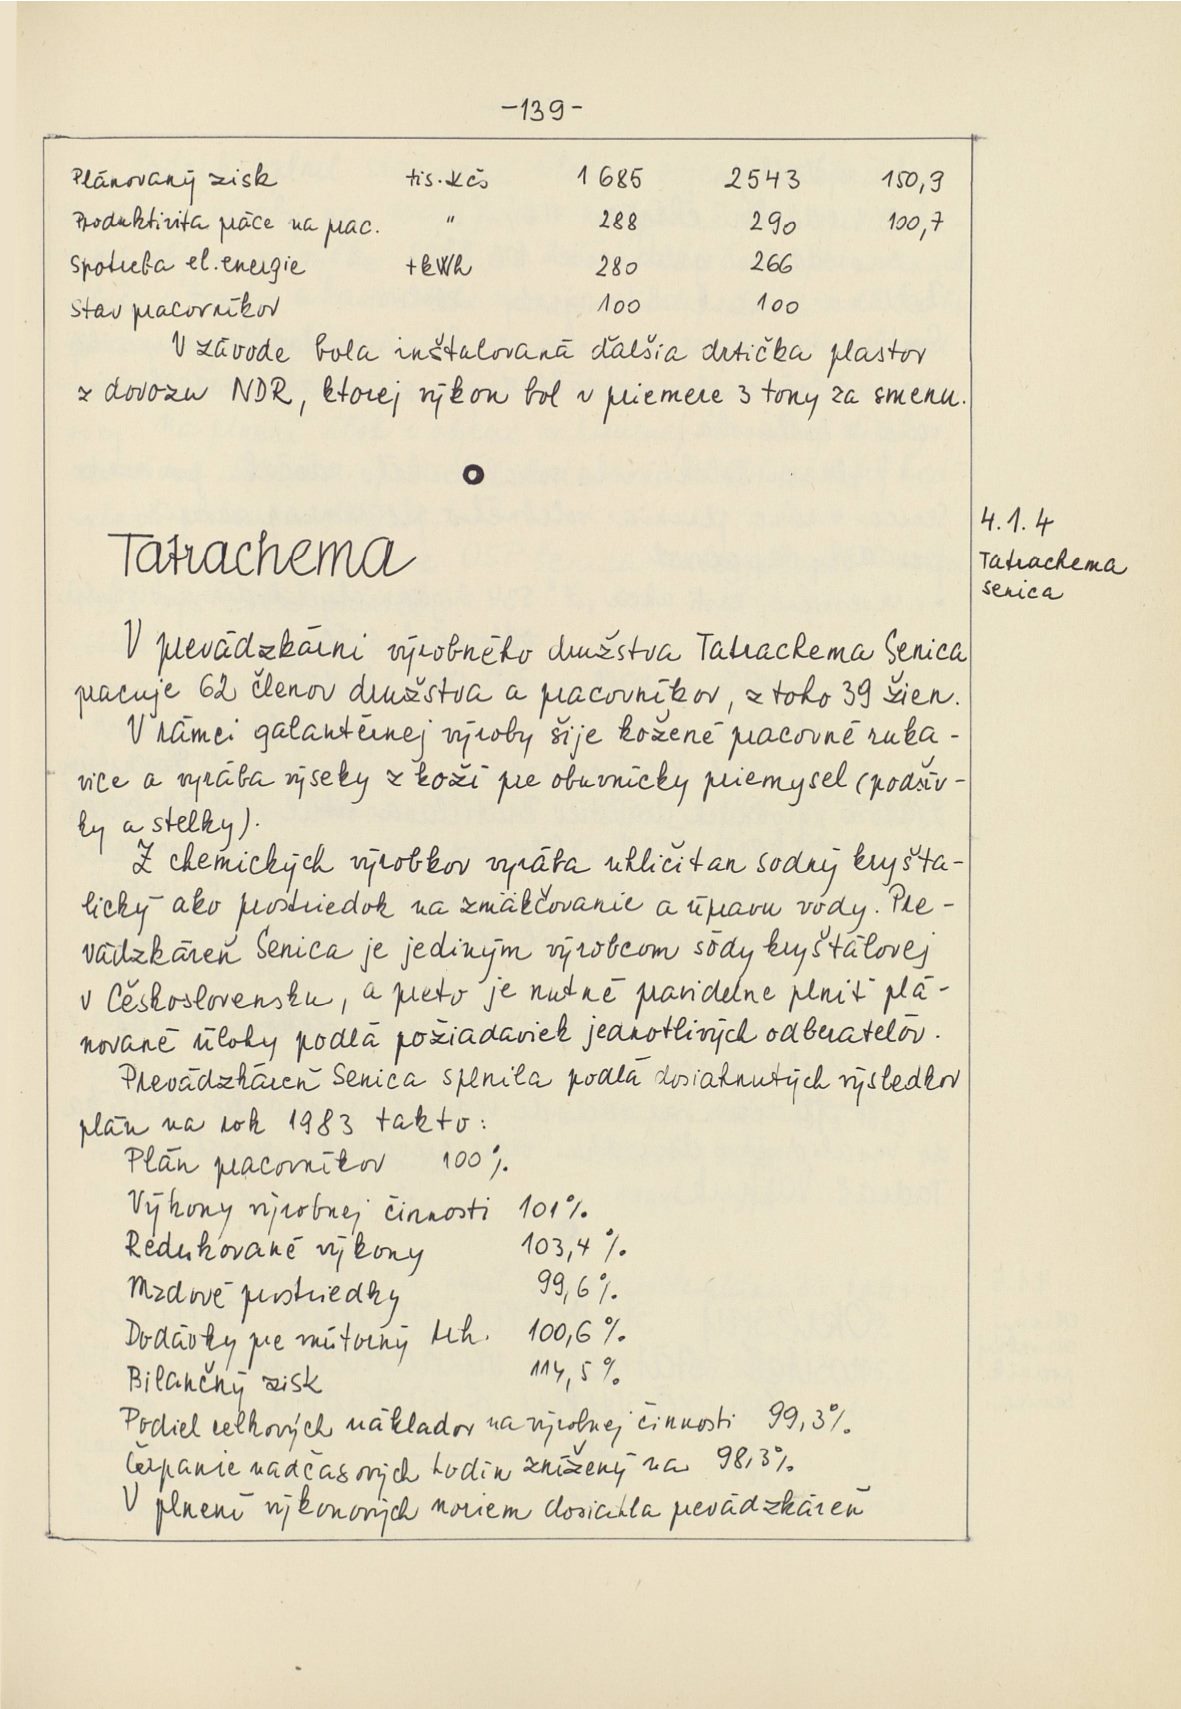 -139-
Plánovaný zisk tis. Kčs 1 685 2543 150,9
Produktivita práce na prac. " 288 290 100,7
Spotreba el. energie tkWh 280 266
Stav pracovníkov 100 100
V závode bola inštalovaná ďalšia drtička plastov
z dovozu NDR, ktorej výkon bol v priemere 3 tony za smenu.
4.1.4
Tatrachema
Senica
Tatrachema
V prevádzkárni výrobného družstva Tatrachema Senica
pracuje 62 členov družstva a pracovníkov, z toho 39 žien.
V rámci galantérnej výroby šije kožené pracovné ruka-
vice a vyrába výseky z koží pre obuvnícky priemysel (podšív-
ky a stelky).
Z chemických výrobkov vyrába uhličitan sodný kryšta-
lický ako prostriedok na zmäkčovanie a úpravu vody. Pre-
vádzkáreň Senica je jediným výrobcom sódy kryštálovej
v Československu, a preto je nutné pravidelne plniť plá-
nované úlohy podlá požiadaviek jednotlivých odberatelóv.
Prevádzkáreň Senica splnila podlá dosiahnutých výsledkov
plán na rok 1983 takto:
Plán pracovníkov 100%
Výkony výrobnej činnosti 101%
Redukované výkony 103,4%
Mzdové prostriedky 99,6%
Dodávky pre vnútorný trh. 100,6%
Bilančný zisk 114,5%
Podiel celkových nákladov na výrobnej činnosti 99,3%
Čerpanie nadčasových hodín znížený na 98,3%
V plnení výkonových noriem dosiahla prevádzkáreň